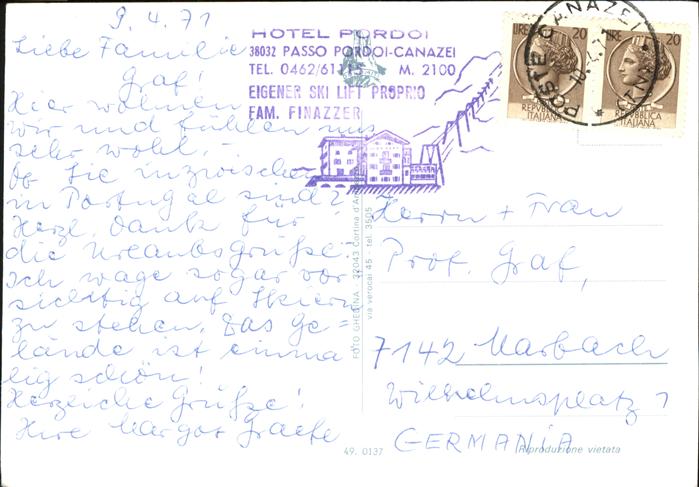 9.4.71
Liebe Familie
Graf!
Hier wohnen
wir und fühlen uns
sehr wohl. –
Ob Sie inzwischen
in Portugal sind?
Herzl. Dank für
die Urlaubsgrüße!
Ich wage sogar vor
sichtig auf Skiern
zu stehen. Das Ge=
lände ist einma
lig schön!
Herzliche Grüße!
Ihre Margot Graefe
HOTEL PORDOI
38032 PASSO PORDOI-CANAZEI
TEL. 0462/61115 M. 2100
EIGENER SKI LIFT PROPRIO
FAM. FINAZZER
LIRE 20
REPUBBLICA
ITALIANA
LIRE 20
REPUBBLICA
ITALIANA
POSTE CANAZEI
Herrn + Frau
Prof. Graf,
7142 Marbach
Wilhelmsplatz 1
GERMANIA
FOTO GHEDINA - 32043 Cortina d'Am
via verocai 45 - tel. 3505
49. 0137
Riproduzione vietata